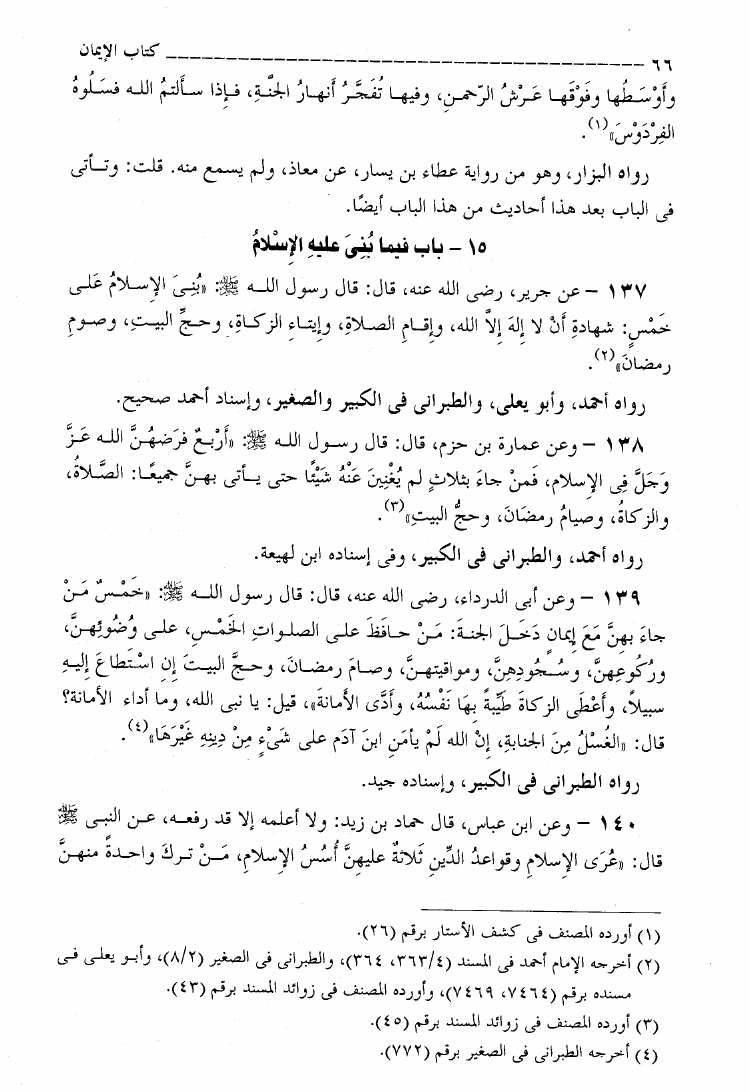 ٦٦ ــــــــــــــــــــــــــــــــــــــــــــــــــــــــــــــــــــــــــــــ كتاب الإيمان
وأَوْسَـطُها وفَوْقَهـا عَـرْشُ الرَّحمـنِ، وفيهـا تُفَجَّـرُ أنهـارُ الجنَّـةِ، فـإذا سـألتمُ اللـه فسَـلُوهُ
الفِرْدَوْسَ»(١).
رواه البزار، وهو من رواية عطاء بن يسار، عن معاذ، ولم يسمع منه. قلت: وتـأتى
فى الباب بعد هذا أحاديث من هذا الباب أيضًا.
١٥ – باب فيما بُنِىَ عليهِ الإِسْلامُ
١٣٧ – عن جرير، رضى الله عنه، قال: قال رسول اللـه ﷺ: «بُنِىَ الإِسـلامُ عَلَـى
خَمْسٍ: شهادةِ أَنْ لا إِلهَ إِلاَّ الله، وإقـام الصـلاةِ، وإيتـاءِ الزكـاةِ، وحـجِّ البيـتِ، وصـومِ
رمضانَ»(٢).
رواه أحمد، وأبو يعلى، والطبرانى فى الكبير والصغير، وإسناد أحمد صحيح.
١٣٨ – وعن عمارة بن حزم، قال: قال رسـول اللـه ﷺ: «أَرْبـعٌ فرَضهُـنَّ الله عَـزَّ
وَجَلَّ فِى الإِسلام، فَمنْ جاءَ بثلاثٍ لم يُغْنِينَ عَنْهُ شَيْئًا حتى يـأتى بهـنَّ جَميعًـا: الصَّلاةُ،
والزكاةُ، وصيامُ رمضَانَ، وحجُّ البيتِ»(٣).
رواه أحمد، والطبرانى فى الكبير، وفى إسناده ابن لهيعة.
١٣٩ – وعن أبى الدرداء، رضى الله عنه، قال: قال رسول اللـه ﷺ: «خَمْـسٌ مَـنْ
جاءَ بهِنَّ مَعَ إيمانٍ دَخَـلَ الجنـةَ: مَـنْ حـافَظَ علـى الصلـواتِ الخَمْـسِ، علـى وُضُوئِهـنَّ،
ورُكُوعِهـنَّ، وسُـجُودِهِنَّ، ومواقيتهـنَّ، وصـامَ رمضـانَ، وحـجَّ البيـتَ إن اسْـتَطاعَ إليهِ
سبيلاً، وأَعْطَى الزكاةَ طَيِّبةً بهَا نَفْسُهُ، وأَدَّى الأَمانةَ»، قيل: يا نبى الله، وما أداء الأمانة؟
قال: «الغُسْلُ مِنَ الجنابةِ، إنَّ الله لَمْ يأمَنِ ابنَ آدَم على شَىْءٍ مِنْ دِينِهِ غَيْرَهَا»(٤).
رواه الطبرانى فى الكبير، وإسناده جيد.
١٤٠ – وعن ابن عباس، قال حماد بن زيد: ولا أعلمه إلا قد رفعـه، عـن النبـى ﷺ
قال: «عُرَى الإسلامِ وقواعدُ الدِّينِ ثَلاثةٌ عليهِنَّ أُسُسُ الإِسلامِ، مَـنْ تـركَ واحـدةً منهـنَّ
(١) أورده المصنف فى كشف الأستار برقم (٢٦).
(٢) أخرجه الإمام أحمد فى المسند (٣٦٣/٤، ٣٦٤)، والطبرانى فى الصغير (٨/٢)، وأبـو يعلـى فـى
مسنده برقم (٧٤٦٤، ٧٤٦٩)، وأورده المصنف فى زوائد المسند برقم (٤٣).
(٣) أورده المصنف فى زوائد المسند برقم (٤٥).
(٤) أخرجه الطبرانى فى الصغير برقم (٧٧٢).